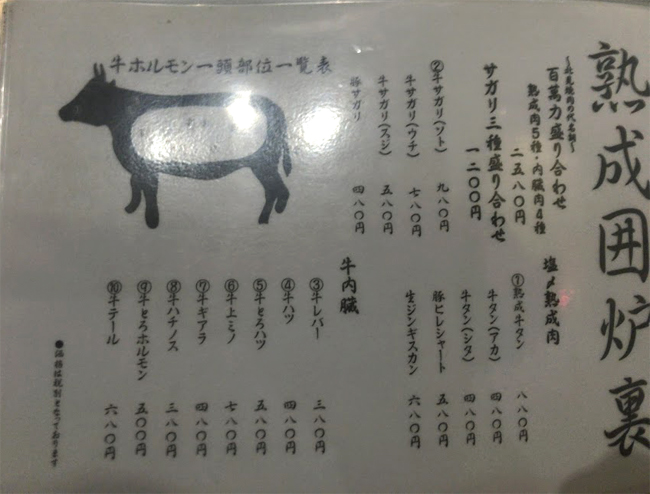 熟成囲炉裏
〜北見焼肉の代名詞〜
百萬力盛り合わせ
熟成肉5種・内臓肉4種
二五八〇円
サガリ三種盛り合わせ
一二〇〇円
②牛サガリ(ソト) 九八〇円
牛サガリ(ウチ) 七八〇円
牛サガリ(スジ) 五八〇円
豚サガリ 四八〇円
牛ホルモン一頭部位一覧表
塩〆熟成肉
①熟成牛タン 八八〇円
牛タン(アカ) 四八〇円
牛タン(シタ) 四八〇円
豚ヒレシャート 五八〇円
生ジンギスカン 六八〇円
牛内臓
③牛レバー 三八〇円
④牛ハツ 四八〇円
⑤牛とろハツ 五八〇円
⑥牛上ミノ 七八〇円
⑦牛ギアラ 四八〇円
⑧牛ハチノス 三八〇円
⑨牛とろホルモン 五〇〇円
⑩牛テール 六八〇円
●価格は税別となっております